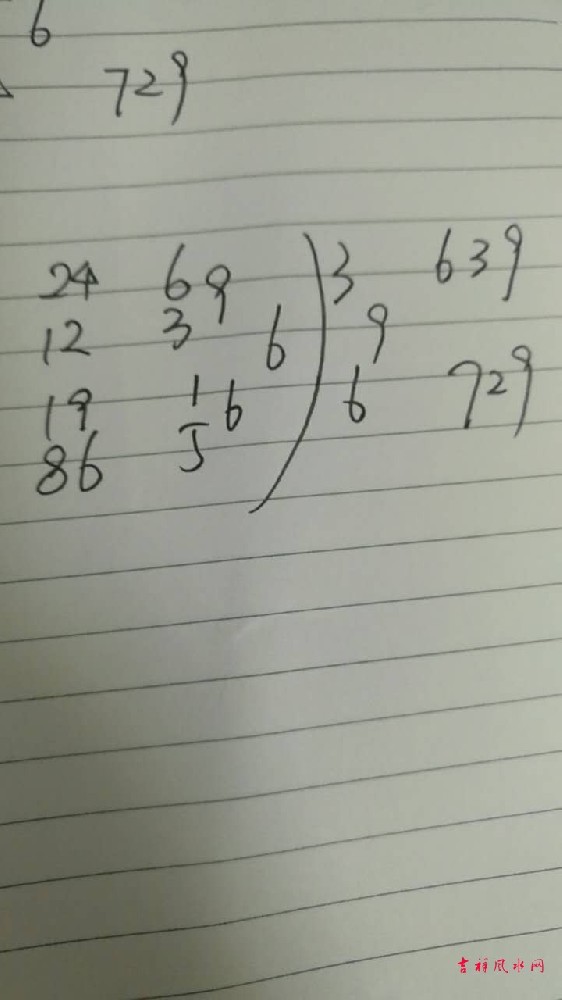 6
729
24 69 3 639
12 3 6 9
19 16 6 729
86 5
吉祥风水网